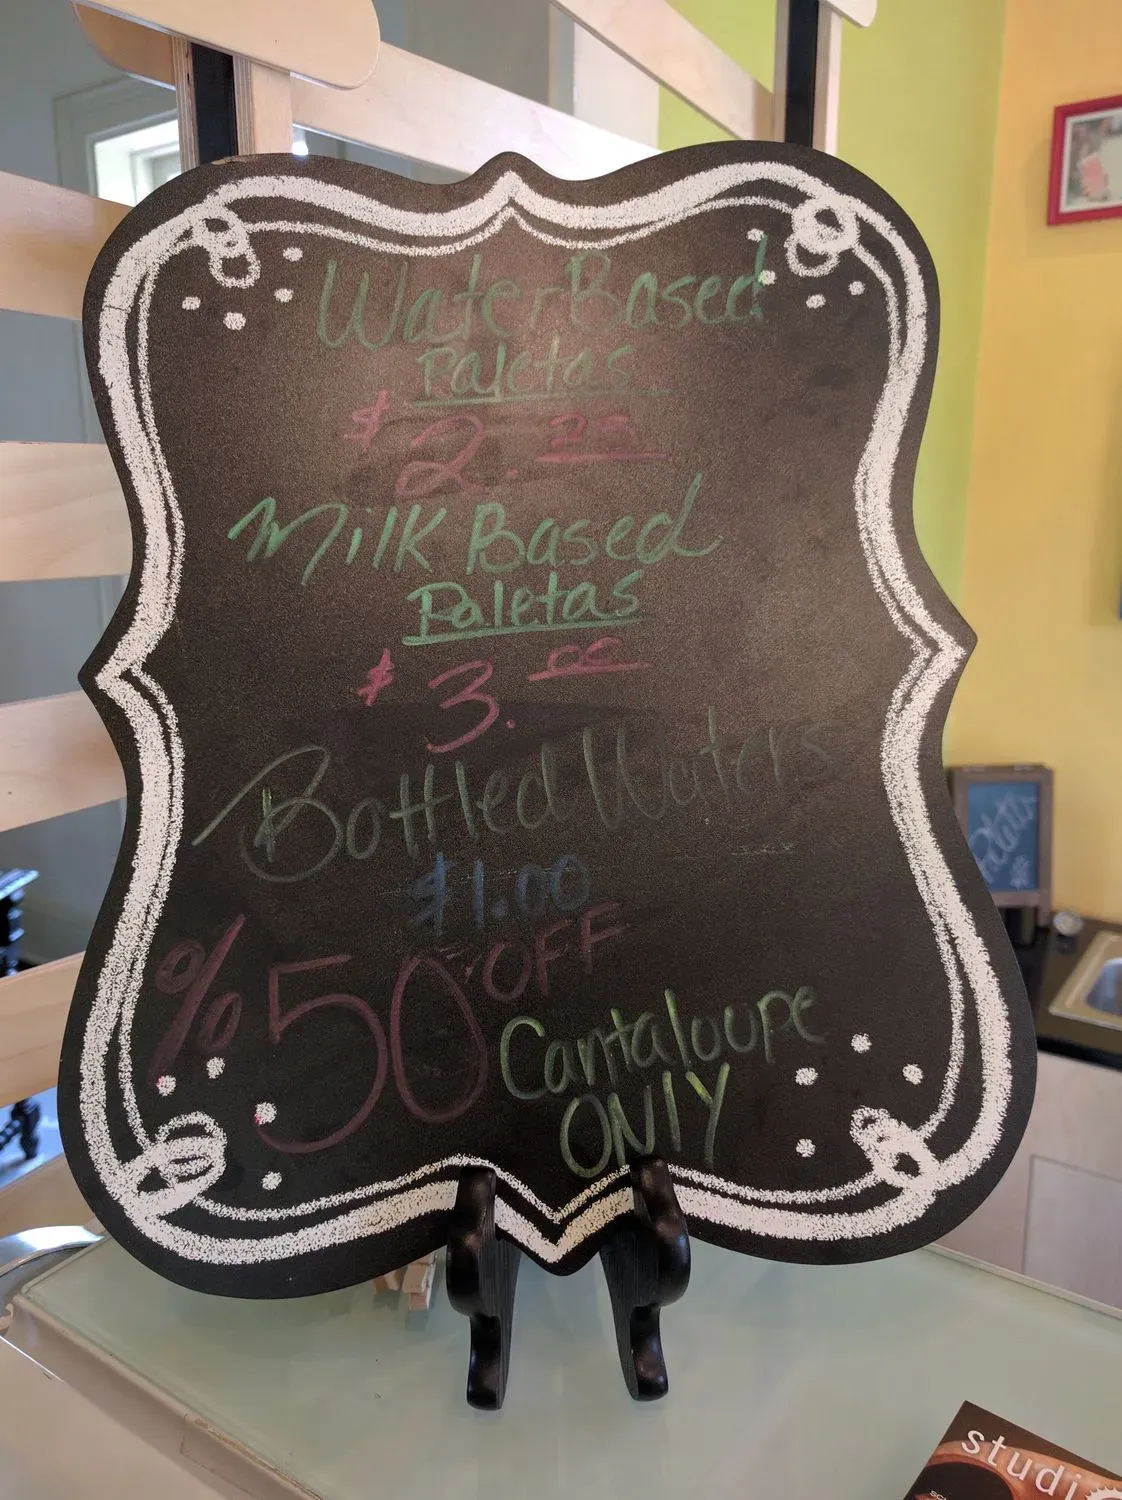 Water Based
Paletas
$2.25
Milk Based
Paletas
$3.00
Bottled Waters
$1.00
%50 OFF
Cantaloupe
ONLY
studio